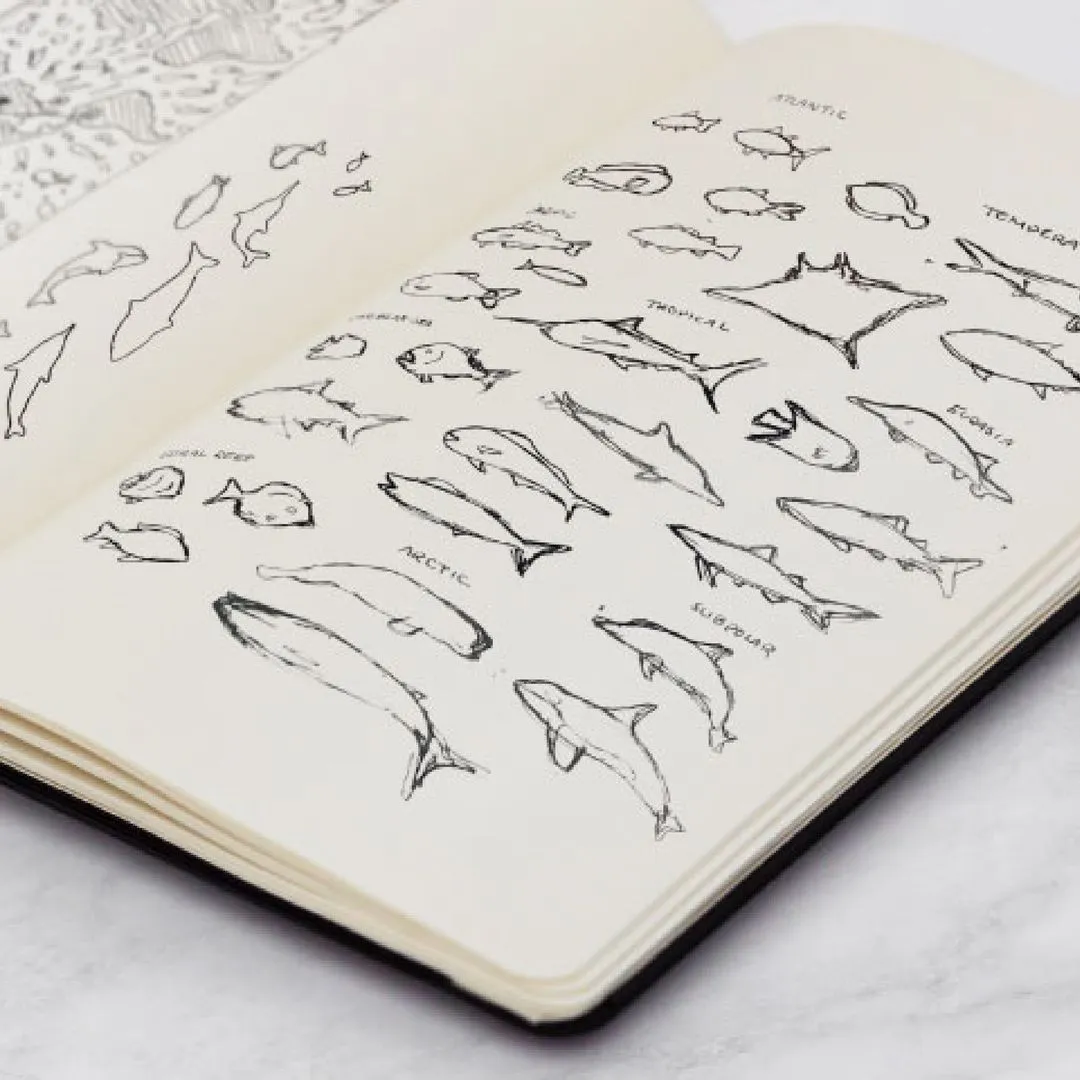 ATLANTIC
TEMPERA
TROPICAL
EURASIA
CORAL REEF
ARCTIC
SUBPOLAR